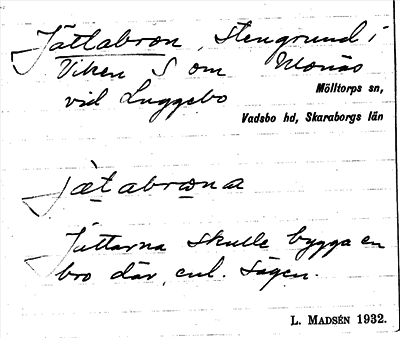 Jättabron, stengrund i
Viken S om Monäs
vid Luggsbo
Mölltorps sn,
Vadsbo hd, Skaraborgs län
jætabrona
Jättarna skulle bygga en
bro där, enl. sägen.
L. MADSÉN 1932.